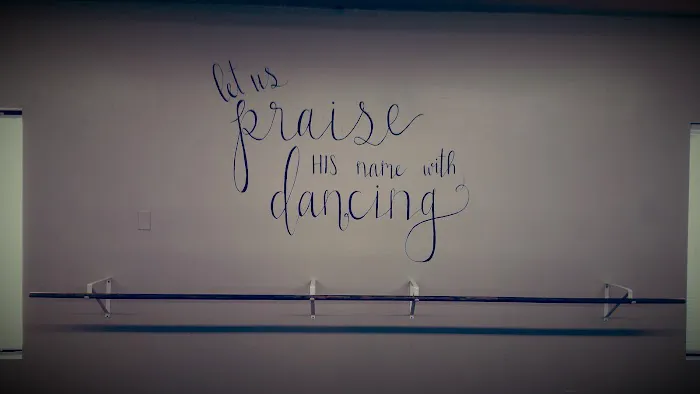 let us
praise
HIS name with
dancing